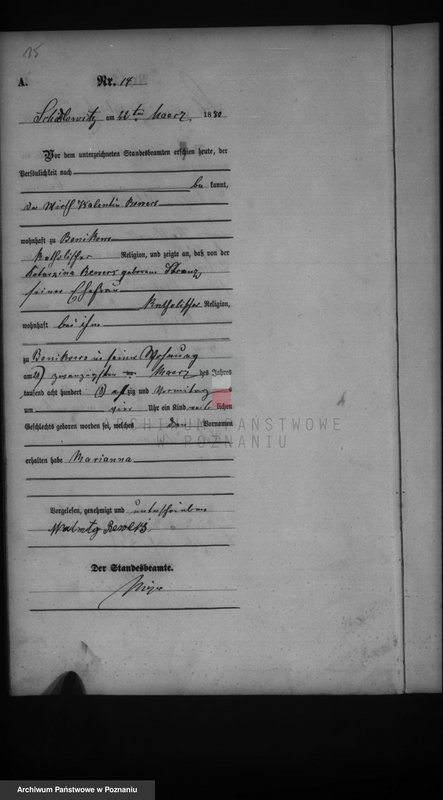 15
A. Nr. 14
am 22ten Maerz 1880
Vor dem unterzeichneten Standesbeamten erschien heute, der
Persönlichkeit nach
be kannt,
der Wirth Valentin
wohnhaft zu
Katholischer Religion, und zeigte an, daß von der
Katarzina geborene
seiner Ehefrau
Katholischer Religion,
wohnhaft bei ihm
zu in seiner Wohnung
am zwanzigsten Maerz des Jahres
tausend acht hundert achtzig und Vormittag s
um vier Uhr ein Kind weiblichen
Geschlechts geboren worden sei, welches den Vornamen
ARCHIWUM PAŃSTWOWE
W POZNANIU
erhalten habe Marianna
Vorgelesen, genehmigt und unterschrieben
Der Standesbeamte.
Archiwum Państwowe w Poznaniu